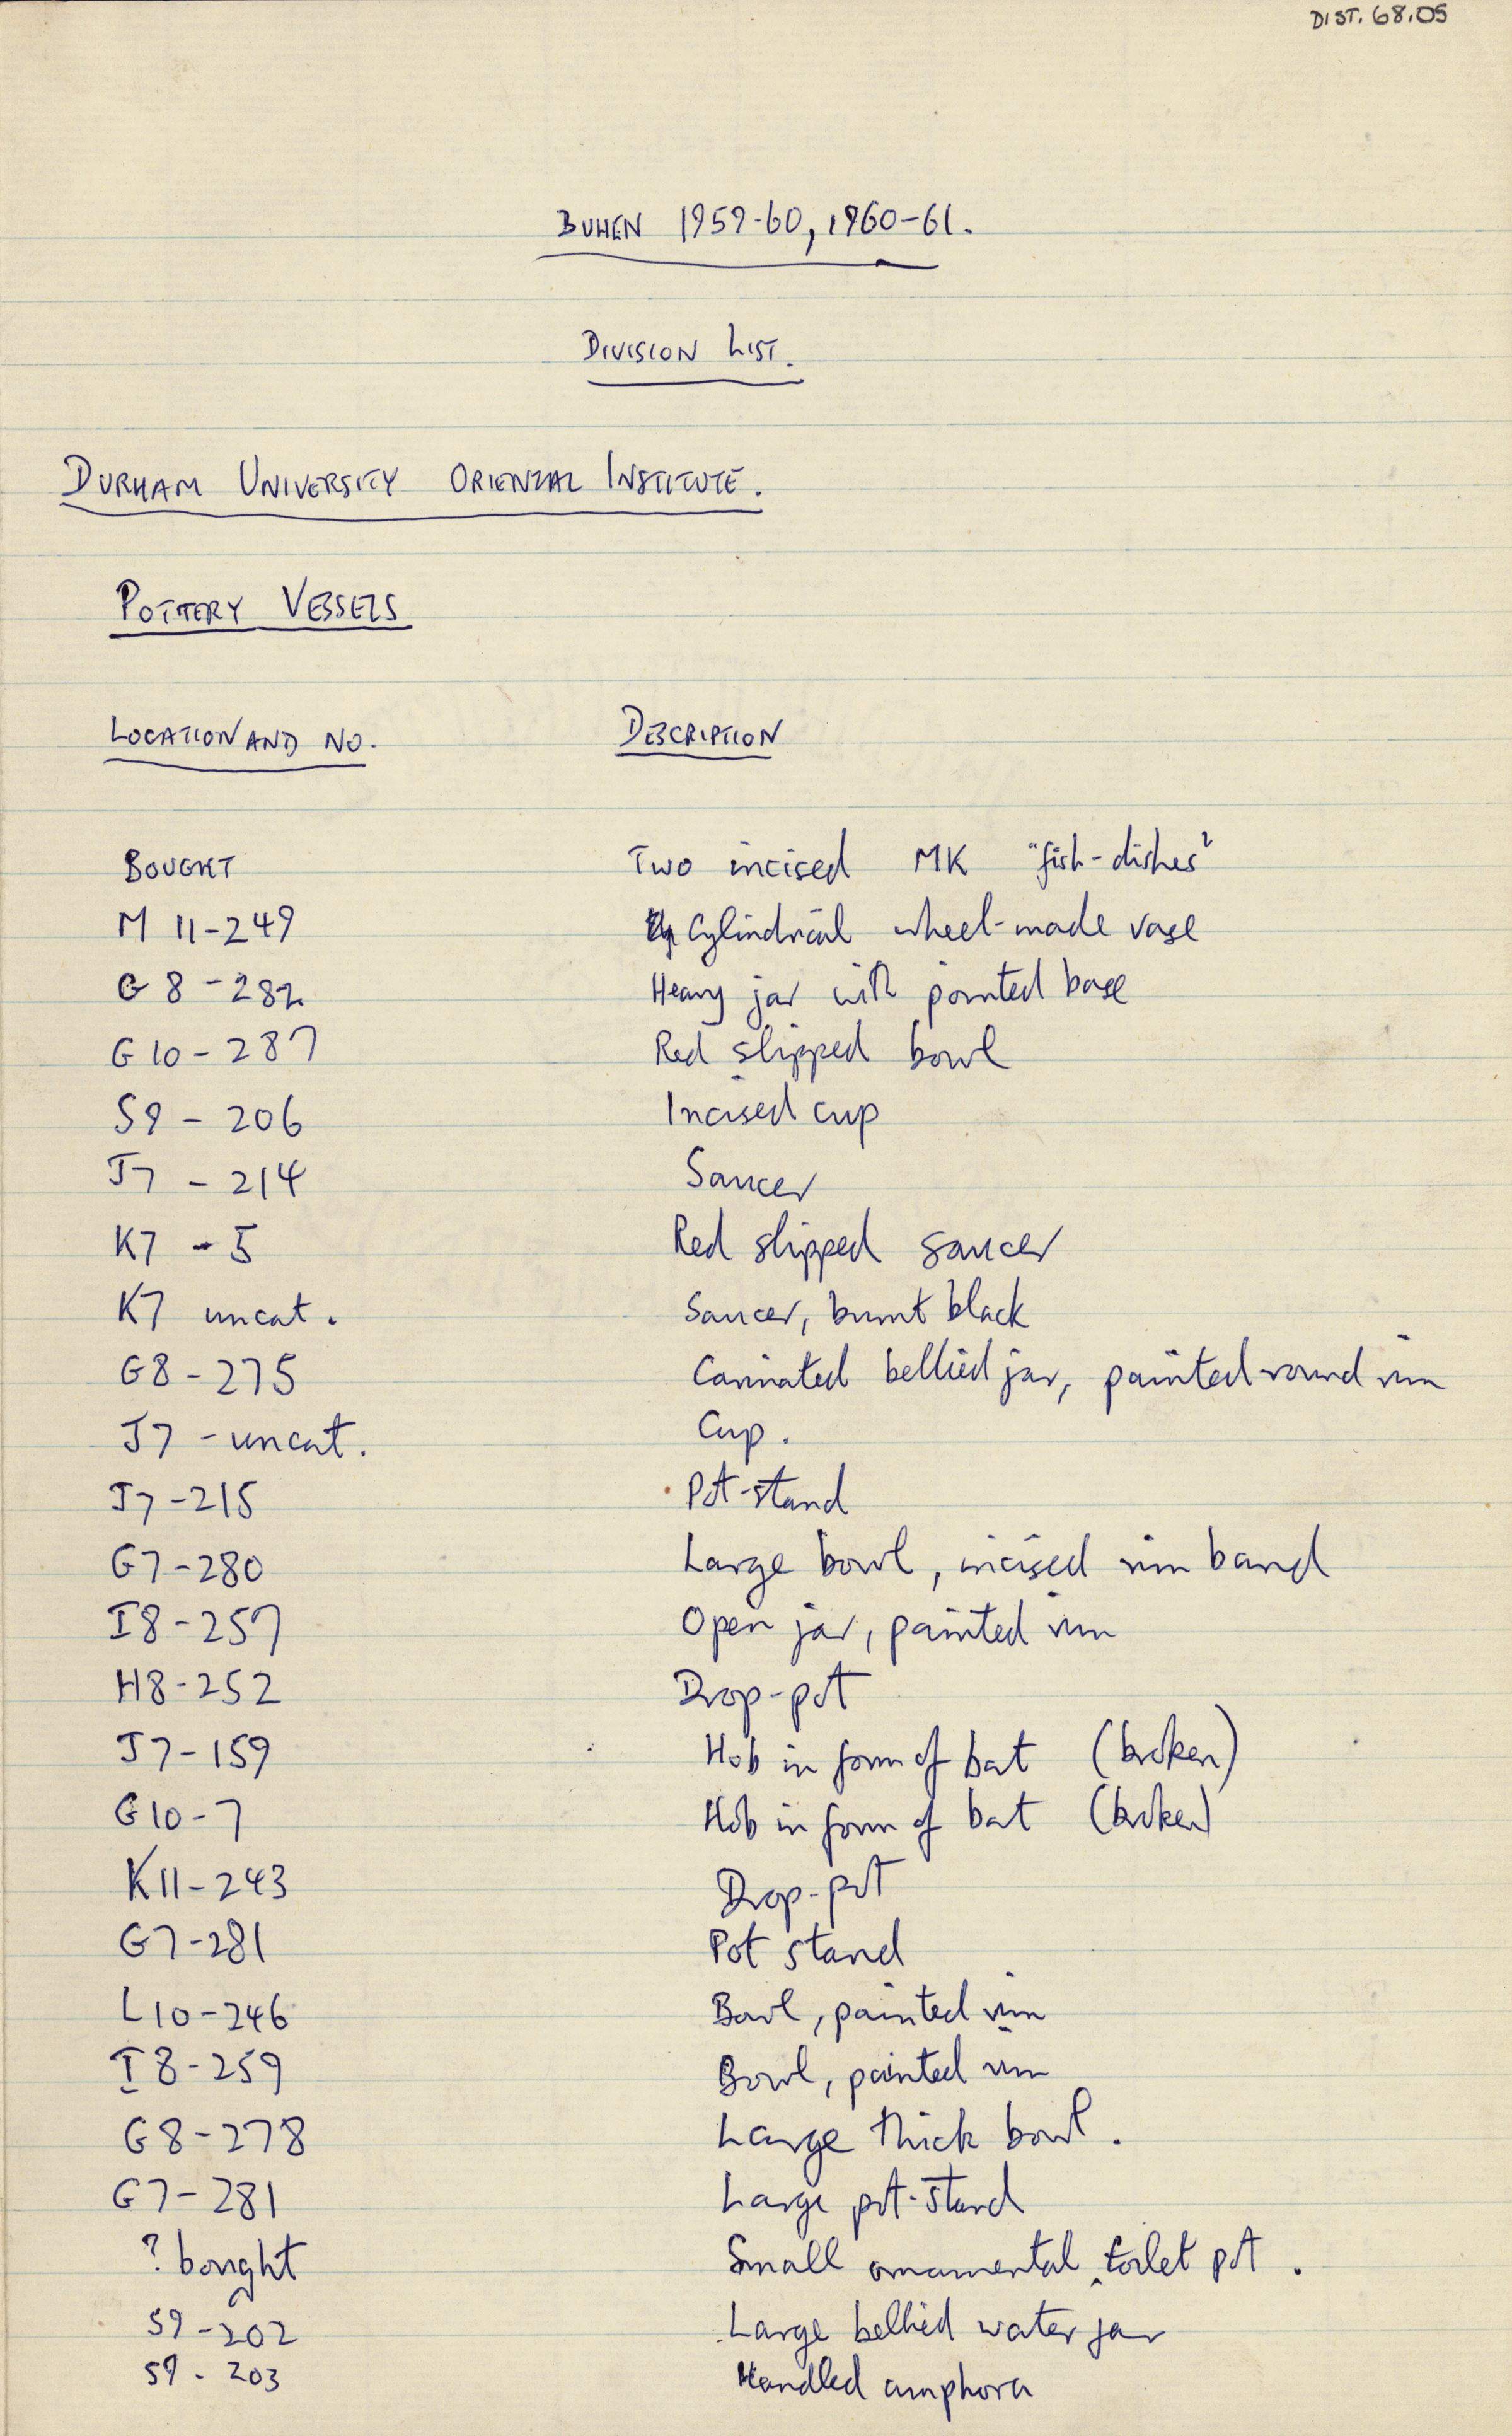 DIST. 68.05
BUHEN 1959-60, 1960-61.
DIVISION LIST.
DURHAM UNIVERSITY ORIENTAL INSTITUTE.
POTTERY VESSELS
LOCATION AND NO. DESCRIPTION
BOUGHT Two incised MK "fish-dishes"
M 11-249 Cylindrical wheel-made vase
G 8-282 Heavy jar with pointed base
G 10-287 Red slipped bowl
S9-206 Incised cup
J7-214 Saucer
K7-5 Red slipped saucer
K7 uncat. Saucer, burnt black
G8-275 Carinated bellied jar, painted round rim
J7-uncat. Cup.
J7-215 Pot-stand
G7-280 Large bowl, incised rim band
I8-257 Open jar, painted rim
H8-252 Drop-pot
J7-159 Hob in form of bat (broken)
G10-7 Hob in form of bat (broken)
K11-243 Drop-pot
G7-281 Pot stand
L10-246 Bowl, painted rim
I8-259 Bowl, painted rim
G8-278 Large thick bowl.
G7-281 Large pot-stand
? bought Small ornamental toilet pot.
S9-202 Large bellied water jar
S9-203 Handled amphora